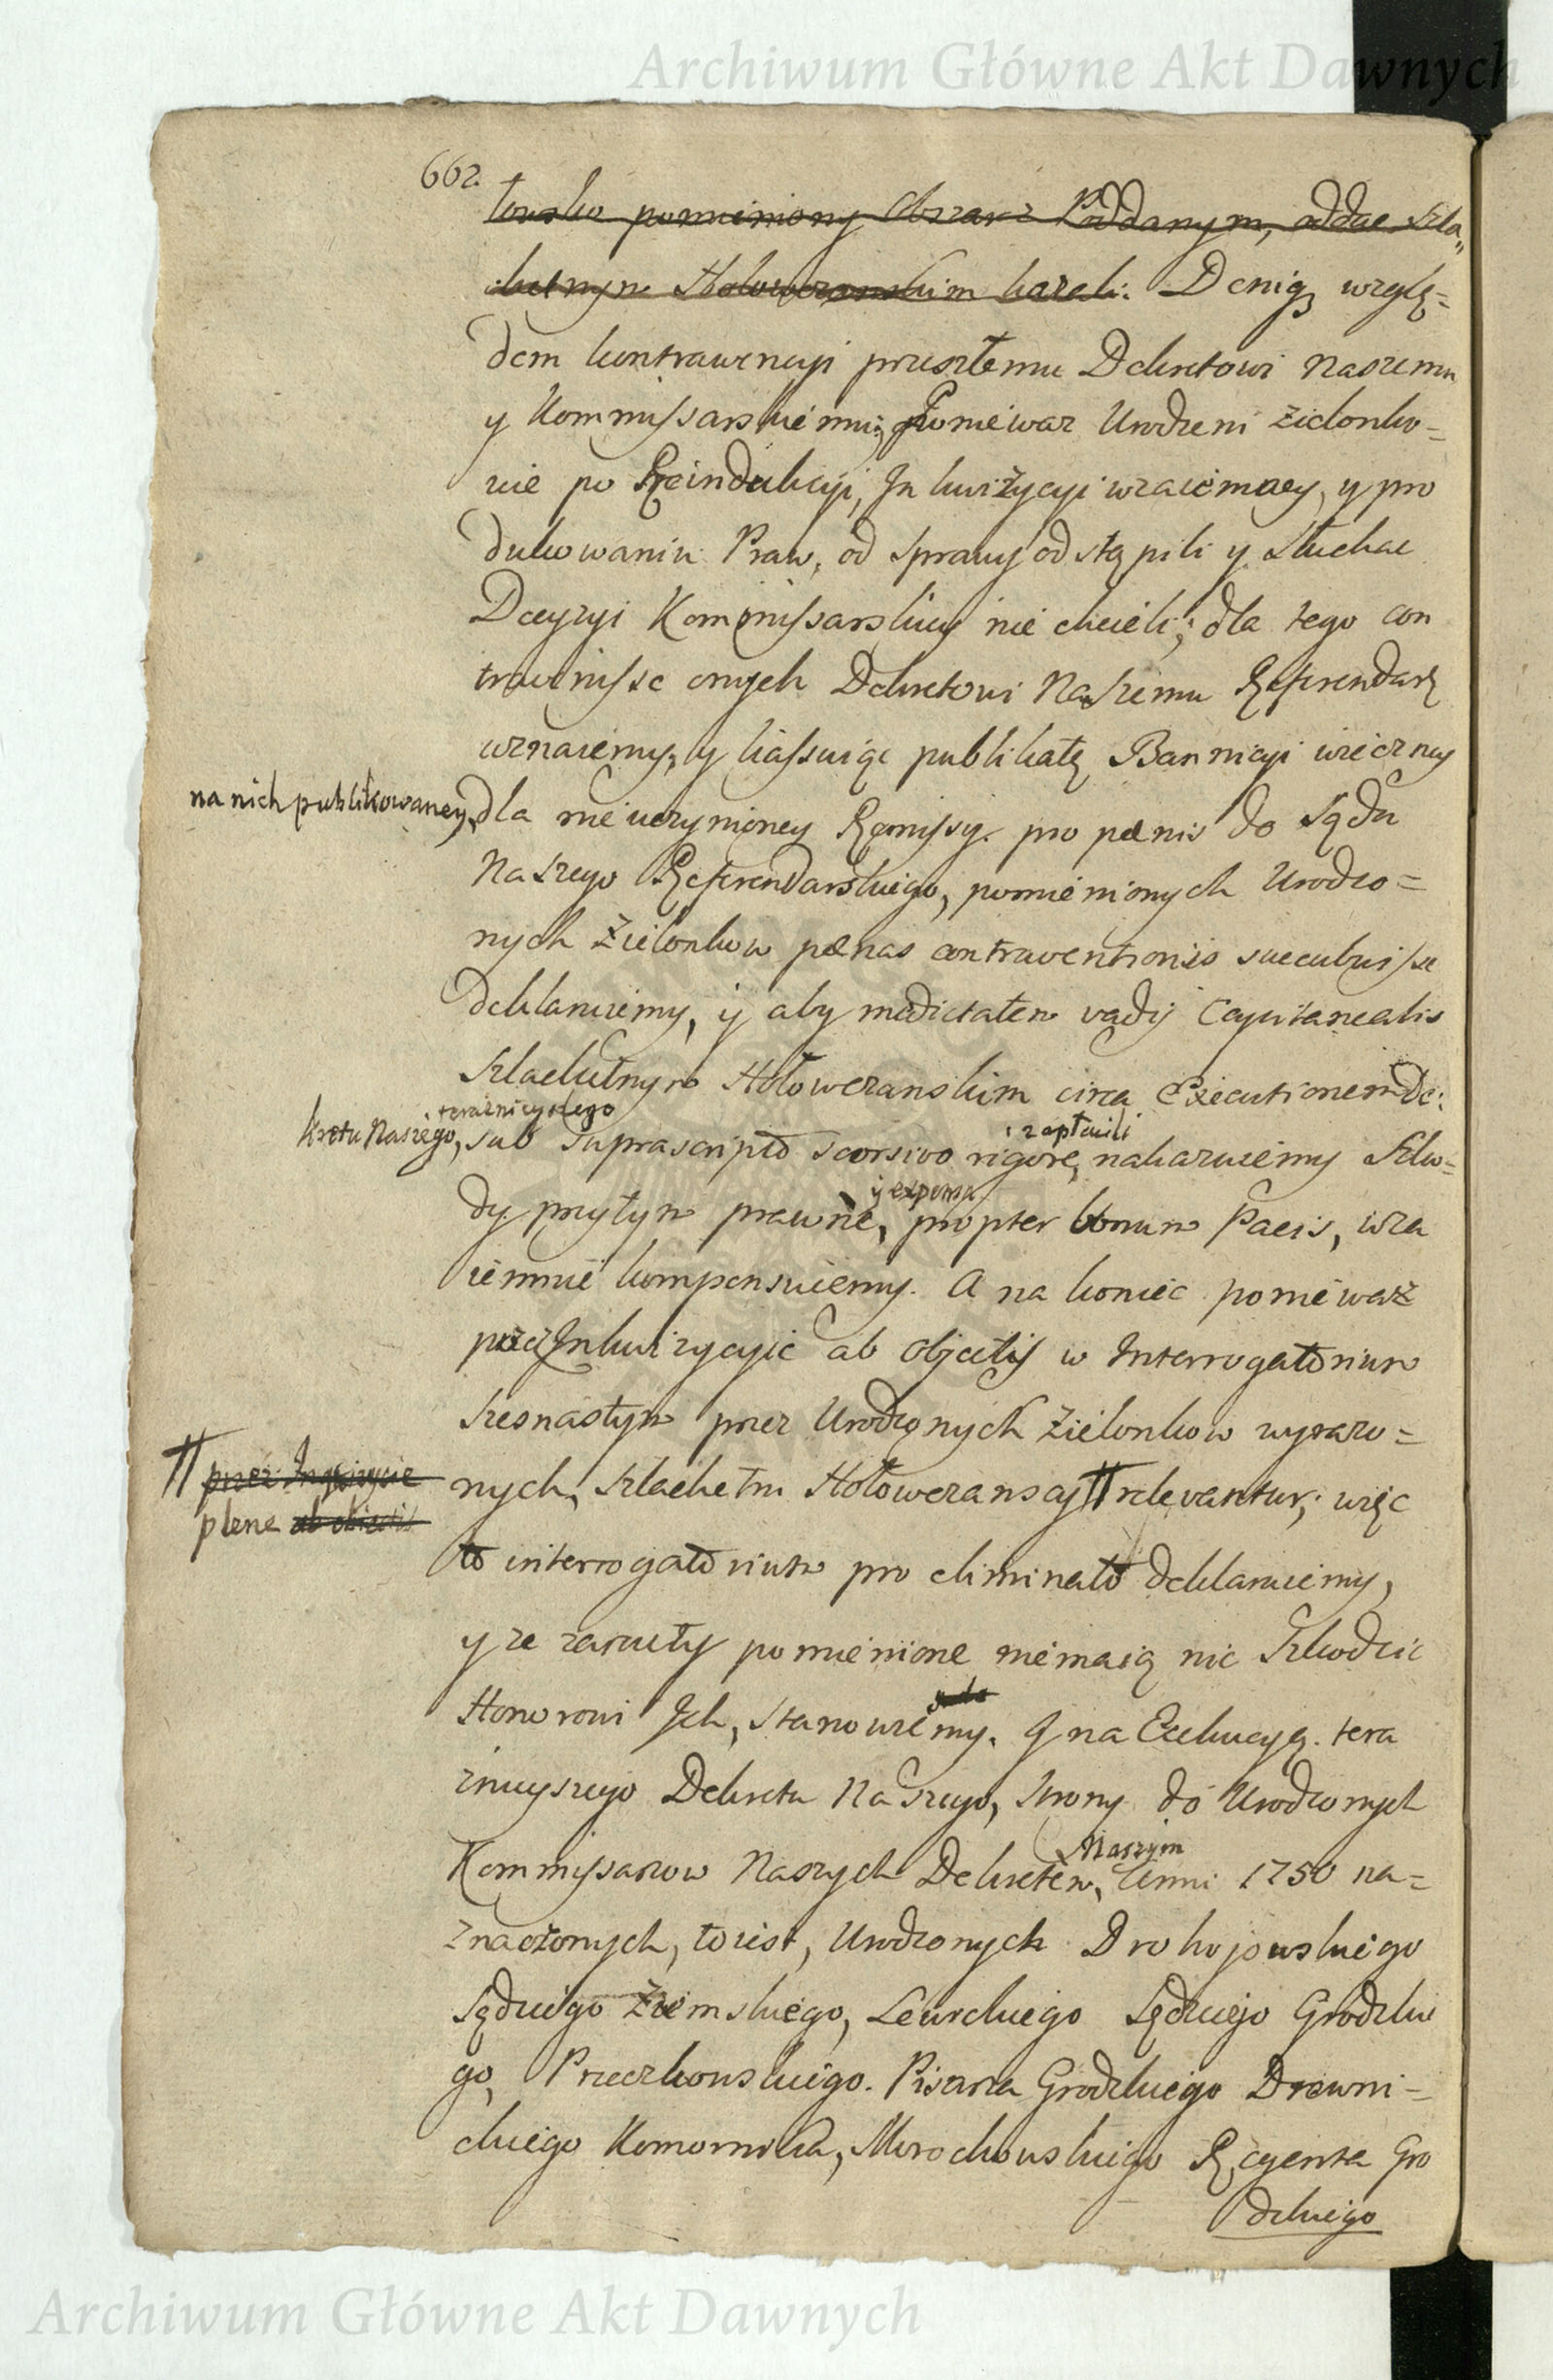 Archiwum Główne Akt Dawnych
662.
towsko pomieniony Obszar z Poddanym, oddac Szla„
chetnym Hołowczanskim kazeli: Denig wzglę=
dem kontrawencyi przeszłemu Dekretowi Naszemu
y Kommissarskiemu; Poniewaz Urodzeni Zielonko=
wie po Reindukcyi, Inkwizycyi wzaiemney, y pro
dukowaniu Praw, od sprawy odstąpili y słuchac
Decyzyi Kommissarskiey nie chcieli; dla tego con
travenisse onych Dekretowi Naszemu Referendar
uznaiemy, y kassuiąc publikatę Bannicyi wieczney
na nich publikowaney, dla nieuczynioney Remissy pro pœnis do Sądu
Naszego Referendarskiego, pomienionych Urodzo=
nych Zielonkow pœnas contraventionis succubuisse
deklaruiemy, y aby medietatem vadij Capitanealis
Szlachetnym Hołowczanskim circa Executionem De:
teraznieyszego
kretu Naszego, sub suprascripto seorsivo rigore, nakazuiemy Szko=
i zapłacili
y expensa
dy przytym prawne, propter bonum Pacis, wza
iemnie kompensuiemy. A na koniec poniewaz
przez Inkwizycyie ab objectis w Interrogatorium
szesnastym przez Urodzonych Zielonkow wyrazo=
nych, Szlachetni Hołowczanscy ╥ relevantur; więc
╥ przez Inqwizycie
plene ab obiectis
to interrogatorium pro eliminato deklaruiemy,
y ze zarzuty pomienione niemaią nic Szkodzic
Honorowi Ich, stanowiemy. Y na Exekucyą tera
znieyszego Dekretu Naszego, Strony do Urodzonych
Kommissarzow Naszych Dekretem, Anni 1750 na=
Naszym
znaczonych, to iest, Urodzonych Drohojowskiego
Sędziego Ziemskiego, Lewickiego Sędziego Grodzkie
go, Przeczkowskiego Pisarza Grodzkiego Drewni=
ckiego Komornika, Morochowskiego Regenta Gro
dzkiego
Archiwum Główne Akt Dawnych